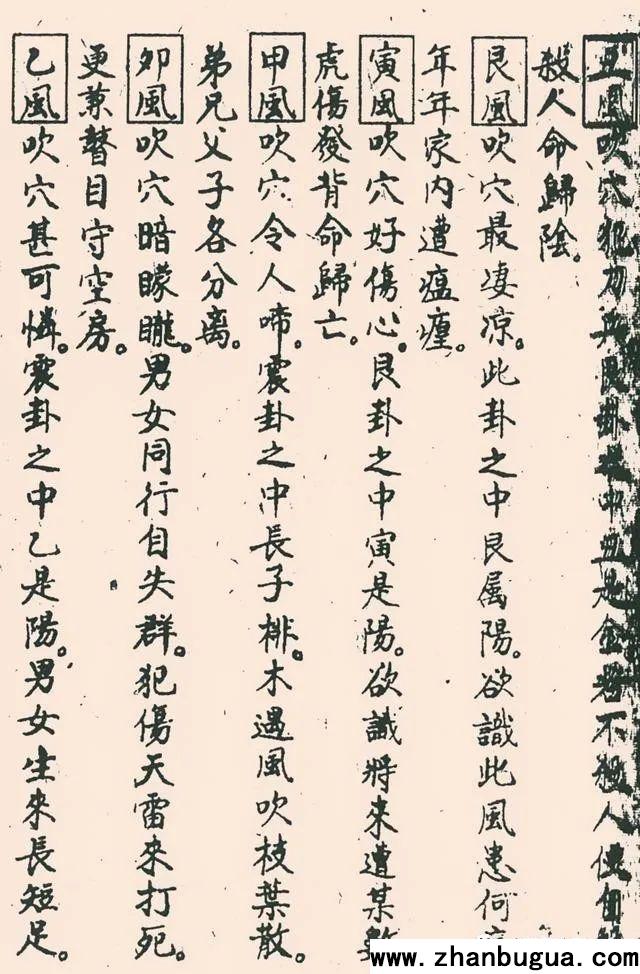 丑風吹穴犯刀兵艮卦之中丑是金若不殺人使自
殺人命歸陰。
艮風吹穴最凄凉。此卦之中艮属陽。欲識此風患何
年年家内遭瘟。
寅風吹穴好傷心。艮卦之中寅是陽。欲識將來遭某
虎傷發背命歸亡。
甲風吹穴令人啼。震卦之中長子排。木遇風吹枝葉散。
弟兄父子各分离。
卯風吹穴暗矇矓。男女同行自失群。犯傷天雷來打死。
更兼瞽目守空房。
乙風吹穴甚可憐。震卦之中乙是陽。男女生來長短足。
www.zhanbugua.com